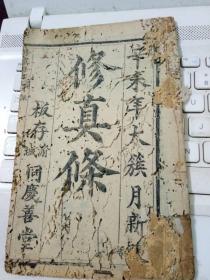 辛未年太簇月新
修真條
板存渝
城同慶善堂